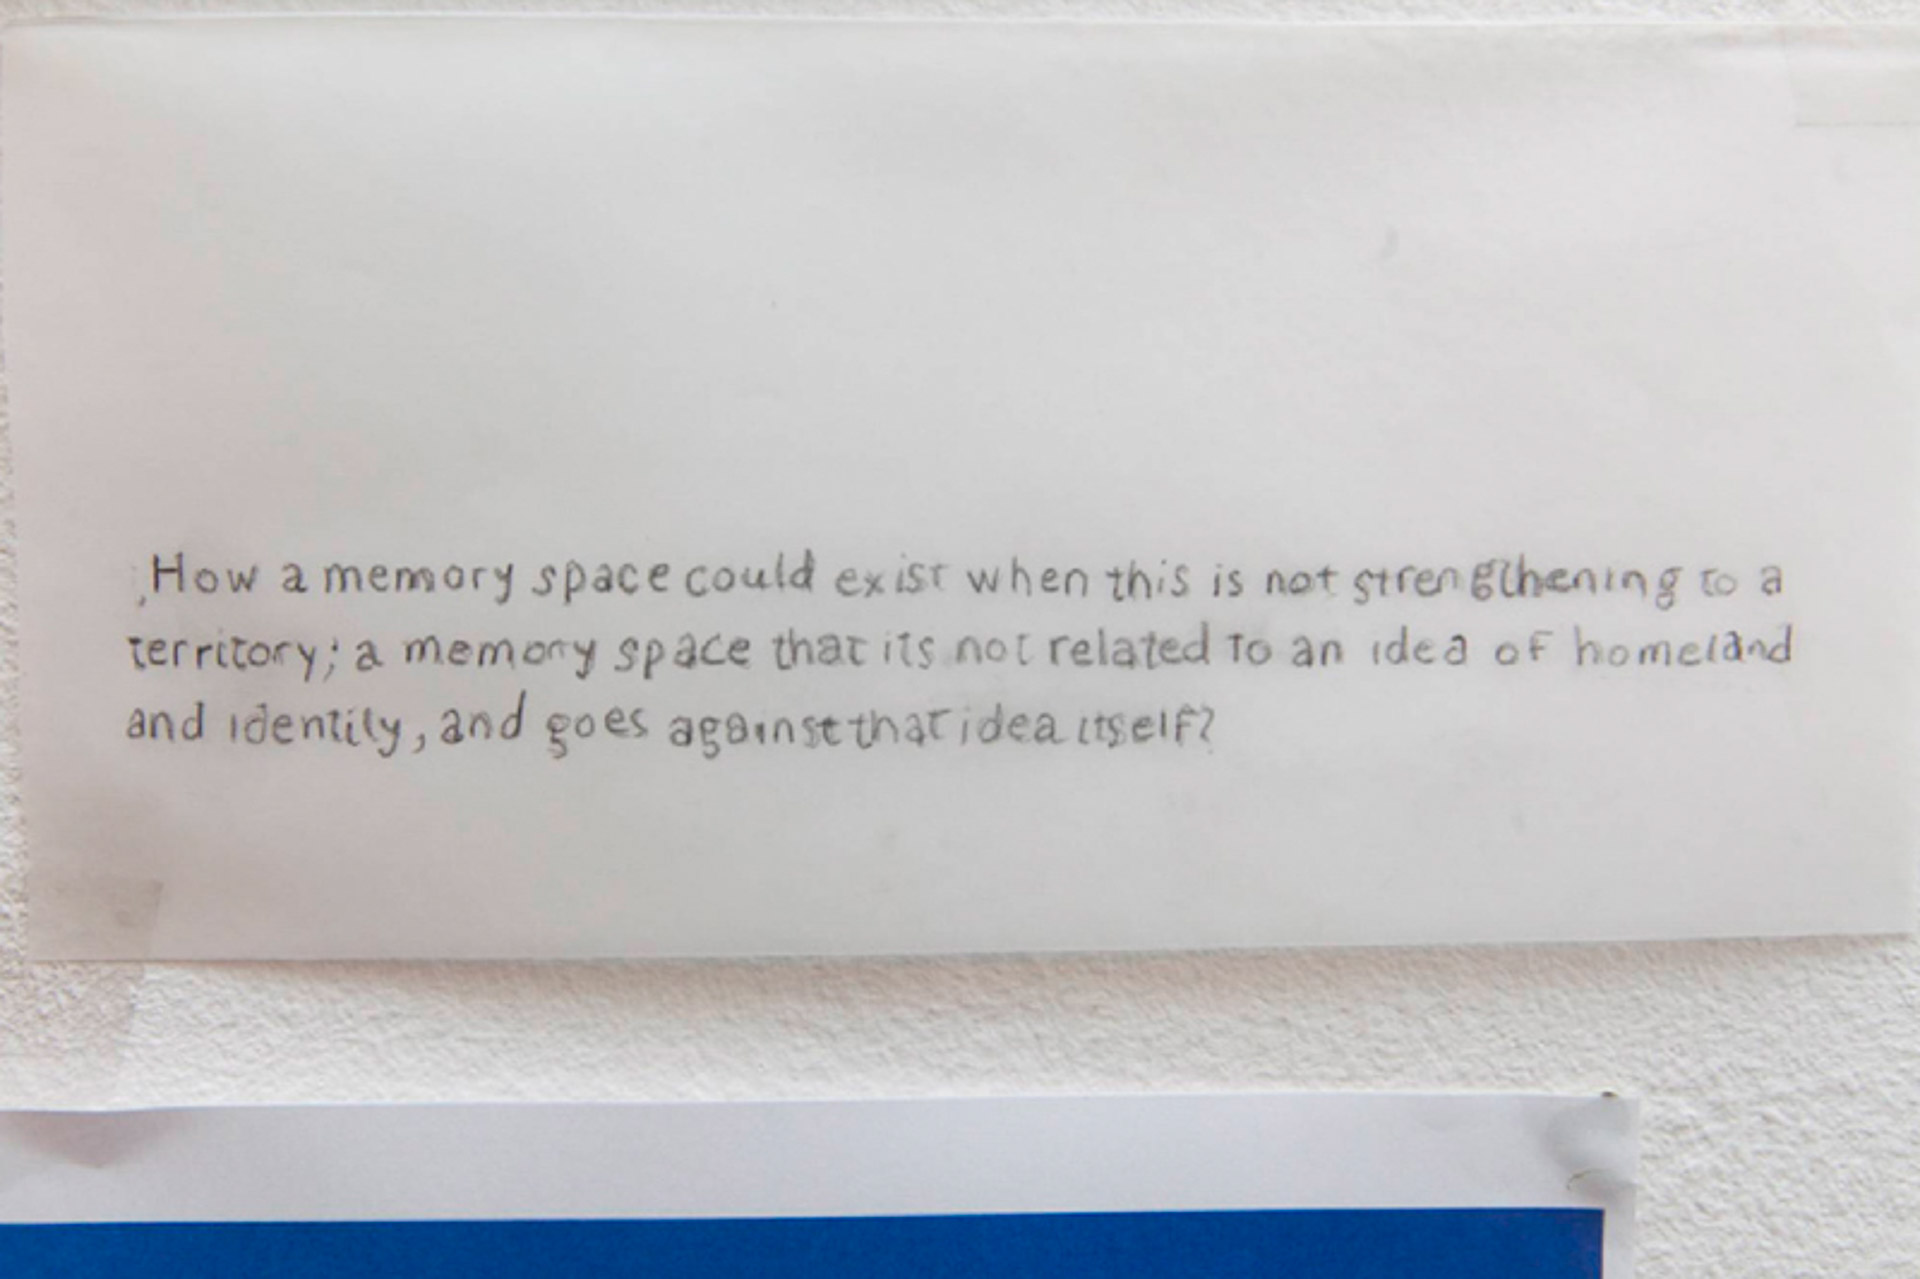 How a memory space could exist when this is not strengthening to a
territory; a memory space that its not related to an idea of homeland
and identity, and goes against that idea itself?